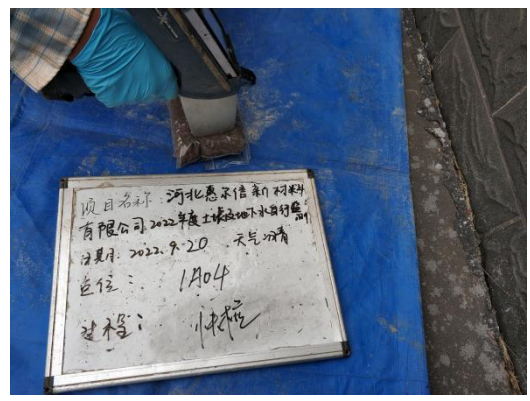 项目名称: 河北惠尔信新材料
有限公司2022年度土壤及地下水自行监测
日期: 2022.9.20 天气: 晴
点位: 1A04
过程: 快检